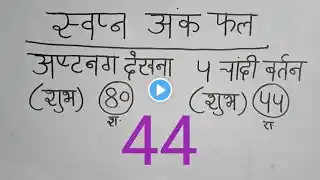 स्वप्न अंक फल
अण्टनग देखना ५ चांदी बर्तन
(शुभ) ८० (शुभ) ५५
श: रा
44